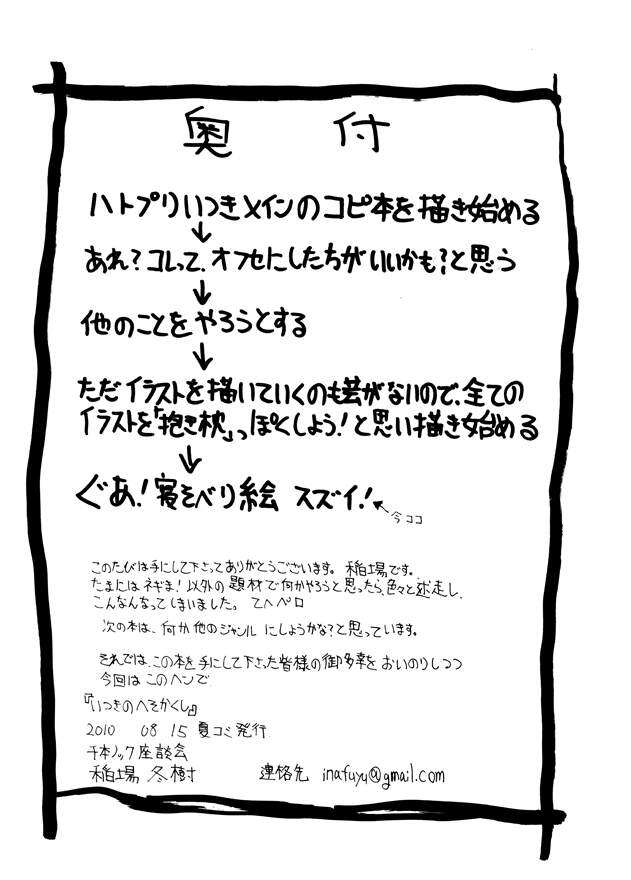 奥付
ハトプリいつきメインのコピ本を描き始める
↓
あれ?コレって、オフセにしたちがいいかも?と思う
↓
他のことをやろうとする
↓
ただイラストを描いていくのも芸がないので、全ての
イラストを「抱き枕」っぽくしよう!と思い描き始める
↓
ぐあ!寝そべり絵 スズイ!←今ココ
このたびは手にして下さってありがとうございます。稲場です。
たまにはネギま!以外の題材で何かやろうと思ったら、色々と迷走し、
こんなんなってしまいました。 てへペロ
次の本は、何か他のジャンルにしようかな?と思っています。
それでは、この本を手にして下さった皆様の御多幸をおいのりしつつ
今回はこのヘンで
『いつきのへそかくし』
2010 08 15 夏コミ発行
千本ノック座談会
稲場冬樹 連絡先 inafuyu@gmail.com